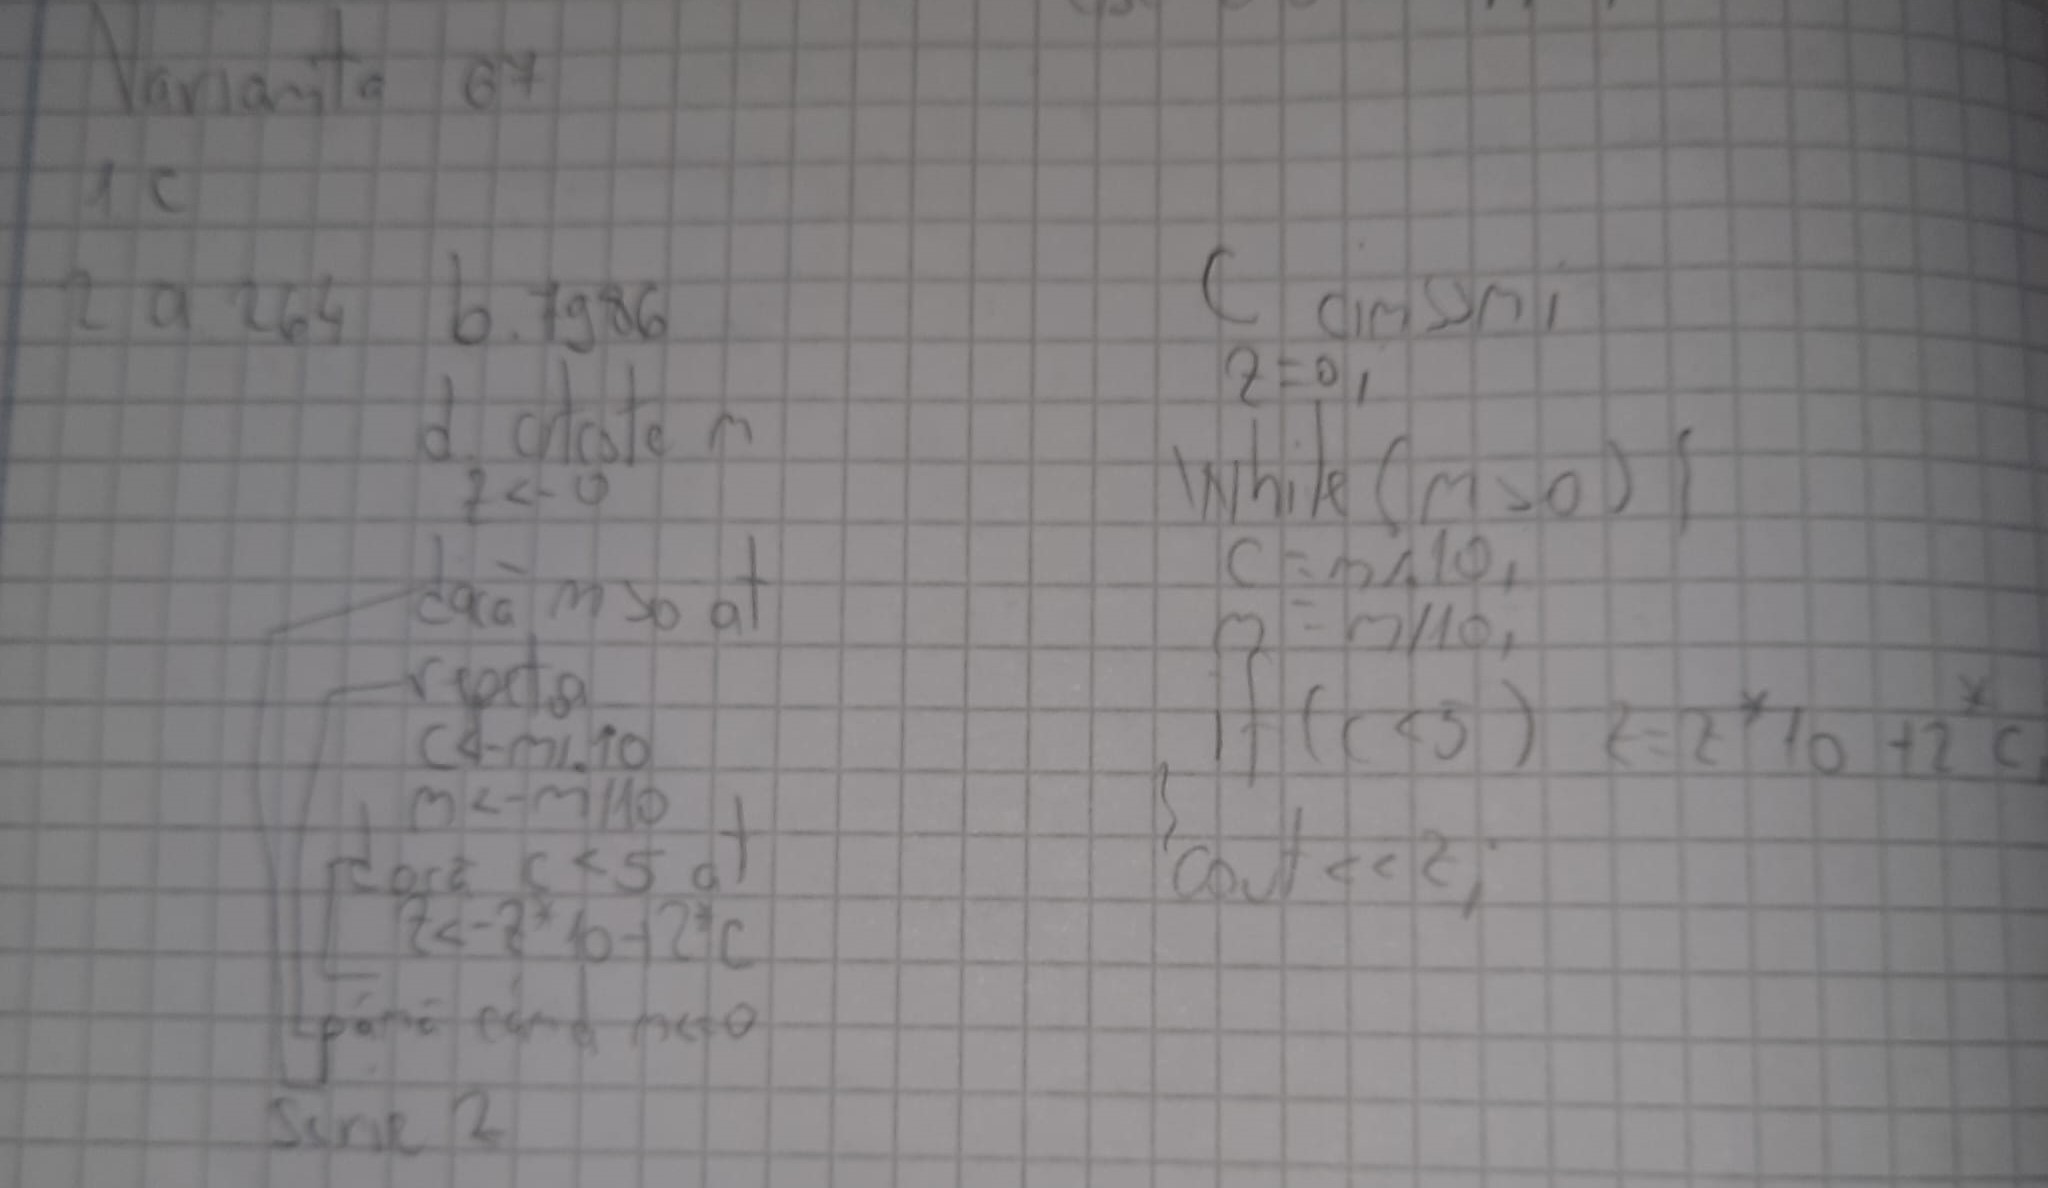 Varianta 67
1. c
2 a 264 b. 7986
d. citeste n
z <- 0
dacă n > 0 at
repeta
c <- n % 10
n <- n/10
dacă c < 5 at
z <- z * 10 + 2 * c
până când n <= 0
scrie z
C cin >> n;
z = 0;
while (n > 0) {
c = n % 10;
n = n/10;
if (c < 5) z = z * 10 + 2 * c;
}
cout << z;